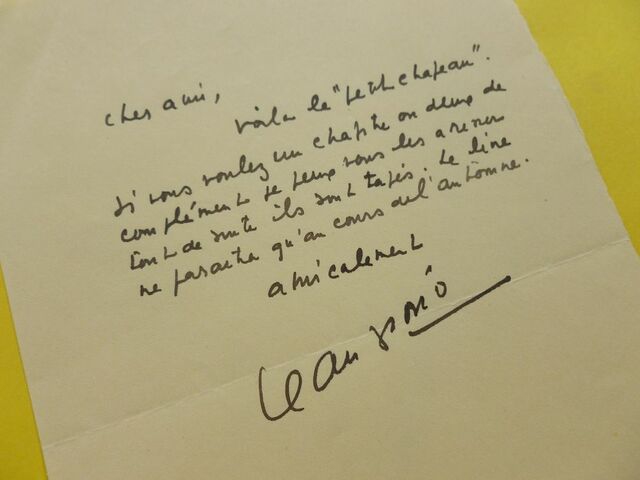 cher ami,
voilà le "petit chapeau".
si vous voulez un chapitre ou deux de
complément je peux vous les donner
tout de suite ils sont tapés. Le livre
ne paraitra qu'au cours de l'automne.
amicalement
Jean Giono